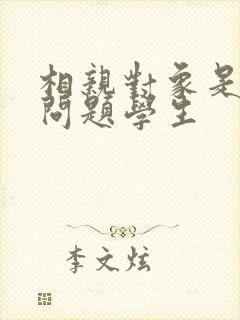 相親對象是
問題學生
李文炫